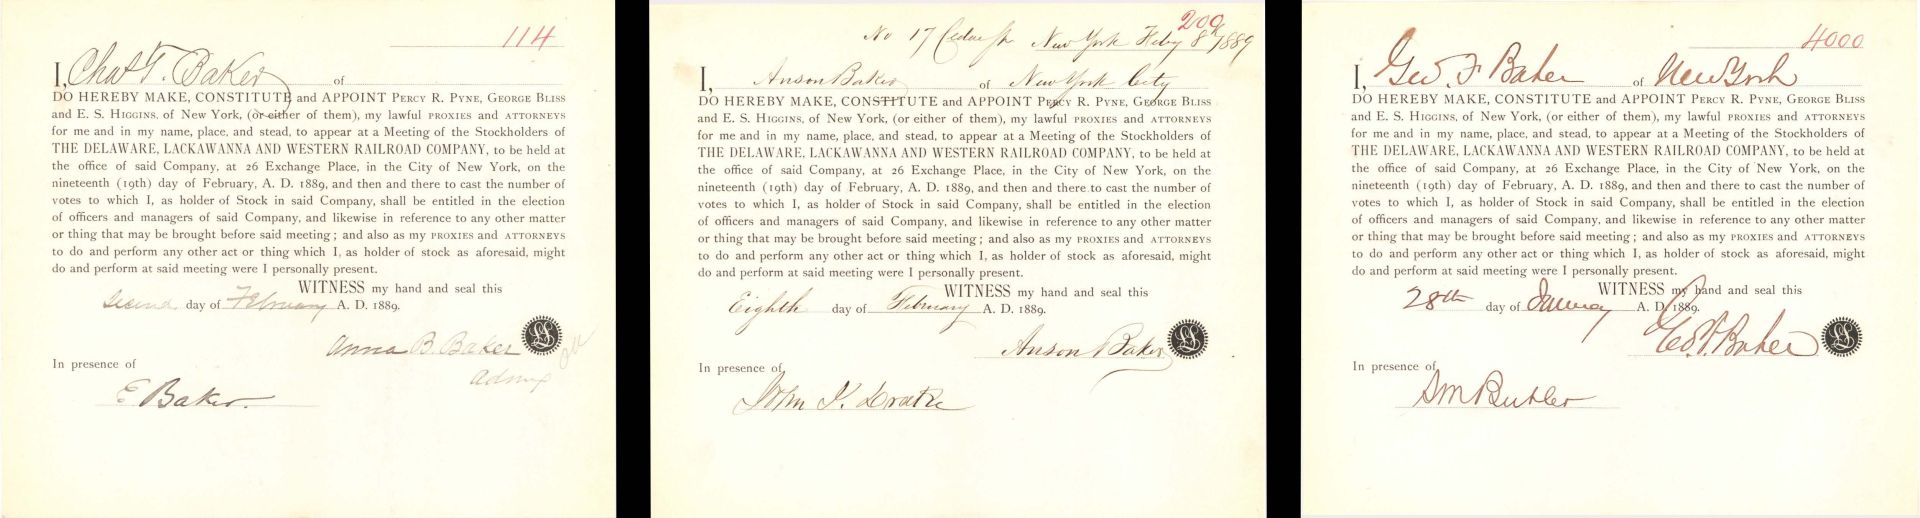 114
I, Chas T. Baker of
DO HEREBY MAKE, CONSTITUTE and APPOINT PERCY R. PYNE, GEORGE BLISS
and E. S. HIGGINS, of New York, (or either of them), my lawful PROXIES and ATTORNEYS
for me and in my name, place, and stead, to appear at a Meeting of the Stockholders of
THE DELAWARE, LACKAWANNA AND WESTERN RAILROAD COMPANY, to be held at
the office of said Company, at 26 Exchange Place, in the City of New York, on the
nineteenth (19th) day of February, A. D. 1889, and then and there to cast the number of
votes to which I, as holder of Stock in said Company, shall be entitled in the election
of officers and managers of said Company, and likewise in reference to any other matter
or thing that may be brought before said meeting; and also as my PROXIES and ATTORNEYS
to do and perform any other act or thing which I, as holder of stock as aforesaid, might
do and perform at said meeting were I personally present.
WITNESS my hand and seal this
second day of February A. D. 1889.
Anna B. Baker
Admx
In presence of
E Baker.
200
No 17 Cedar St New York Feby 8th/1889
I, Anson Baker of New York City
DO HEREBY MAKE, CONSTITUTE and APPOINT PERCY R. PYNE, GEORGE BLISS
and E. S. HIGGINS, of New York, (or either of them), my lawful PROXIES and ATTORNEYS
for me and in my name, place, and stead, to appear at a Meeting of the Stockholders of
THE DELAWARE, LACKAWANNA AND WESTERN RAILROAD COMPANY, to be held at
the office of said Company, at 26 Exchange Place, in the City of New York, on the
nineteenth (19th) day of February, A. D. 1889, and then and there to cast the number of
votes to which I, as holder of Stock in said Company, shall be entitled in the election
of officers and managers of said Company, and likewise in reference to any other matter
or thing that may be brought before said meeting; and also as my PROXIES and ATTORNEYS
to do and perform any other act or thing which I, as holder of stock as aforesaid, might
do and perform at said meeting were I personally present.
WITNESS my hand and seal this
Eighth day of February A. D. 1889.
Anson Baker
In presence of
John
4000
I, Geo. F Baker of New York
DO HEREBY MAKE, CONSTITUTE and APPOINT PERCY R. PYNE, GEORGE BLISS
and E. S. HIGGINS, of New York, (or either of them), my lawful PROXIES and ATTORNEYS
for me and in my name, place, and stead, to appear at a Meeting of the Stockholders of
THE DELAWARE, LACKAWANNA AND WESTERN RAILROAD COMPANY, to be held at
the office of said Company, at 26 Exchange Place, in the City of New York, on the
nineteenth (19th) day of February, A. D. 1889, and then and there to cast the number of
votes to which I, as holder of Stock in said Company, shall be entitled in the election
of officers and managers of said Company, and likewise in reference to any other matter
or thing that may be brought before said meeting; and also as my PROXIES and ATTORNEYS
to do and perform any other act or thing which I, as holder of stock as aforesaid, might
do and perform at said meeting were I personally present.
WITNESS my hand and seal this
28th day of January A. D. 1889.
Geo. F. Baker
In presence of
SM Butler